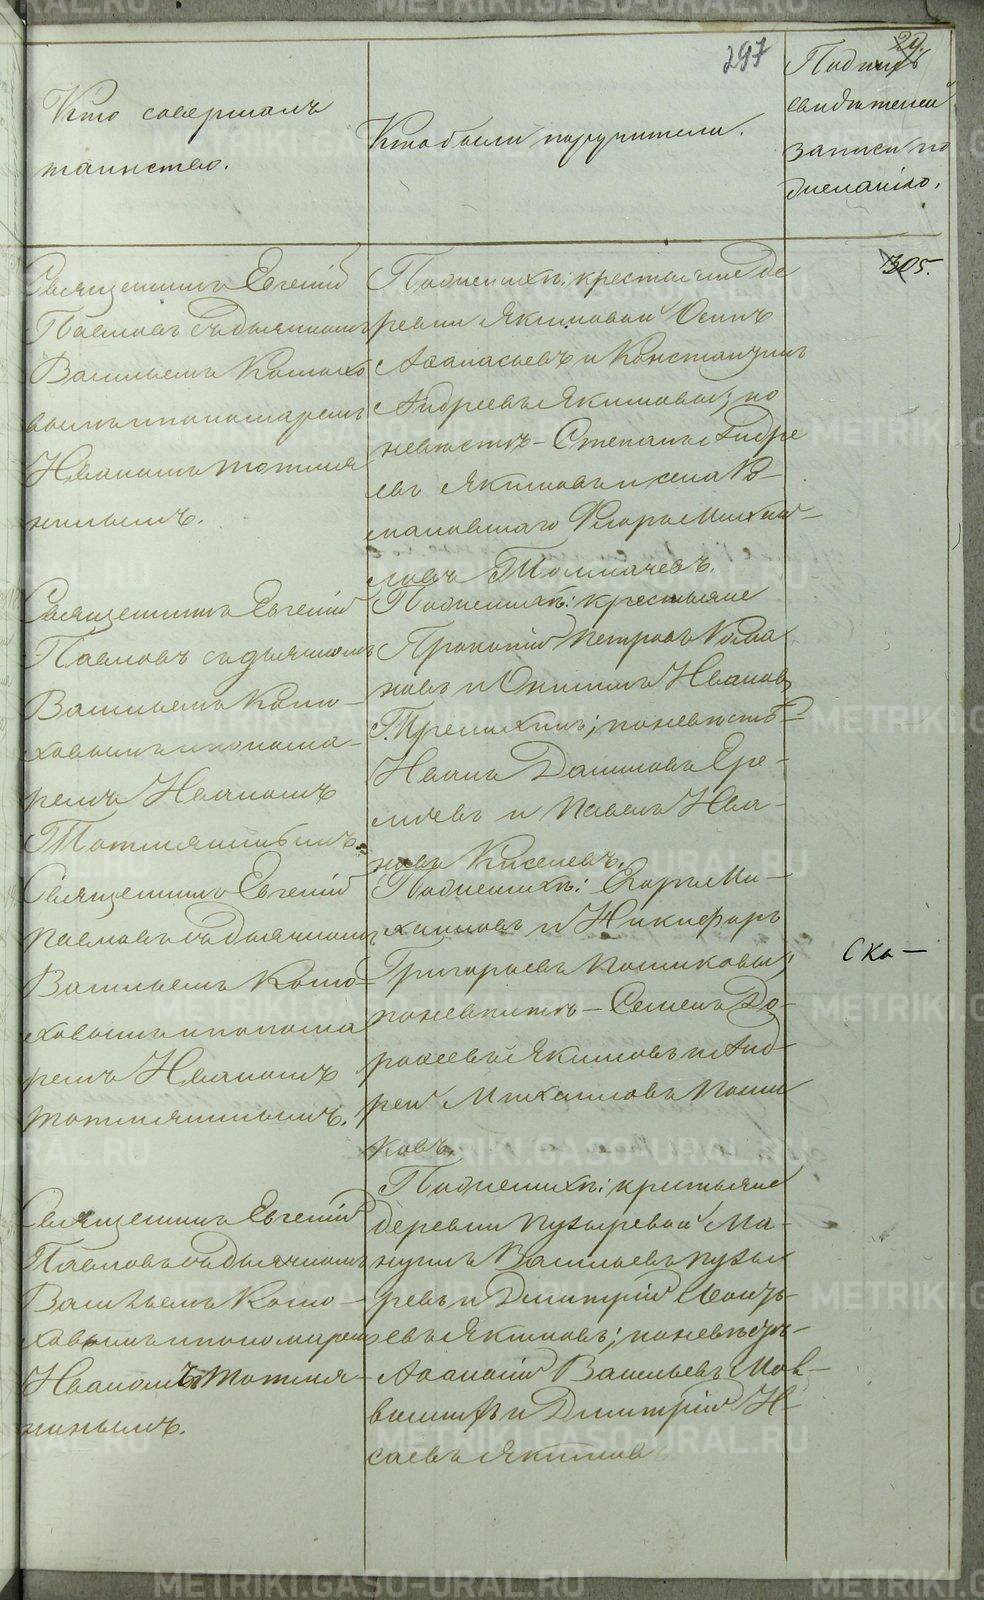 297
29.
Кто совершалъ
таинство.
Кто были поручители.
Подпись
свидѣтелей
записи по
желанію.
305.
Священникъ Евгеній
Павловъ съ дьячкомъ
Васильемъ Колохо
вымъ и пономаремъ
Иваномъ Тотмя
нинымъ.
По женихѣ: крестьяне де
ревни Якимовой Осипъ
Аѳанасьевъ и Константинъ
Андреевъ Якимовы; по
невѣстѣ – Степанъ Андре
евъ Якимовъ и села
Ѳедоръ Михай–
ловъ Толмачевъ.
Священникъ Евгеній
Павловъ съ дьячкомъ
Васильемъ Коло–
ховымъ и понома–
ремъ Иваномъ
Тотмянинымъ.
По женихѣ: крестьяне
Прокопій Петровъ
и Иванов
по невѣстѣ–
Иванъ Даниловъ Ере–
мѣевъ и Павелъ Ива–
новъ Киселевъ.
Священникъ Евгеній
Павловъ съ дьячкомъ
Васильемъ Коло–
ховымъ и понома
ремъ Иваномъ
Тотмянинымъ.
По женихѣ: Егоръ Ми–
хайловъ и Никифоръ
Григорьевъ Пошиковы;
по невѣстѣ – Семенъ До–
роѳеевъ Якимовъ и Анд–
рей Михайловъ Поши
ковъ.
Ска–
Священникъ Евгеній
Павловъ съ дьячкомъ
Васильемъ Коло–
ховымъ и пономаремъ
Иваномъ Тотмя–
нинымъ.
По женихѣ: крестьяне
деревни Пузыревой Ма–
нуилъ Васильевъ Пузы
ревъ и Дмитрій
евъ Якимовъ; по невѣстѣ–
Аѳанасій Васильевъ
и Дмитрій И–
саевъ Якимов
METRIKI.GASO-URAL.RU